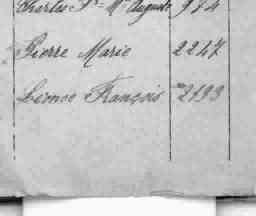 Charles Pre Me Auguste 974
Pierre Marie 2247
Leonce François 2193